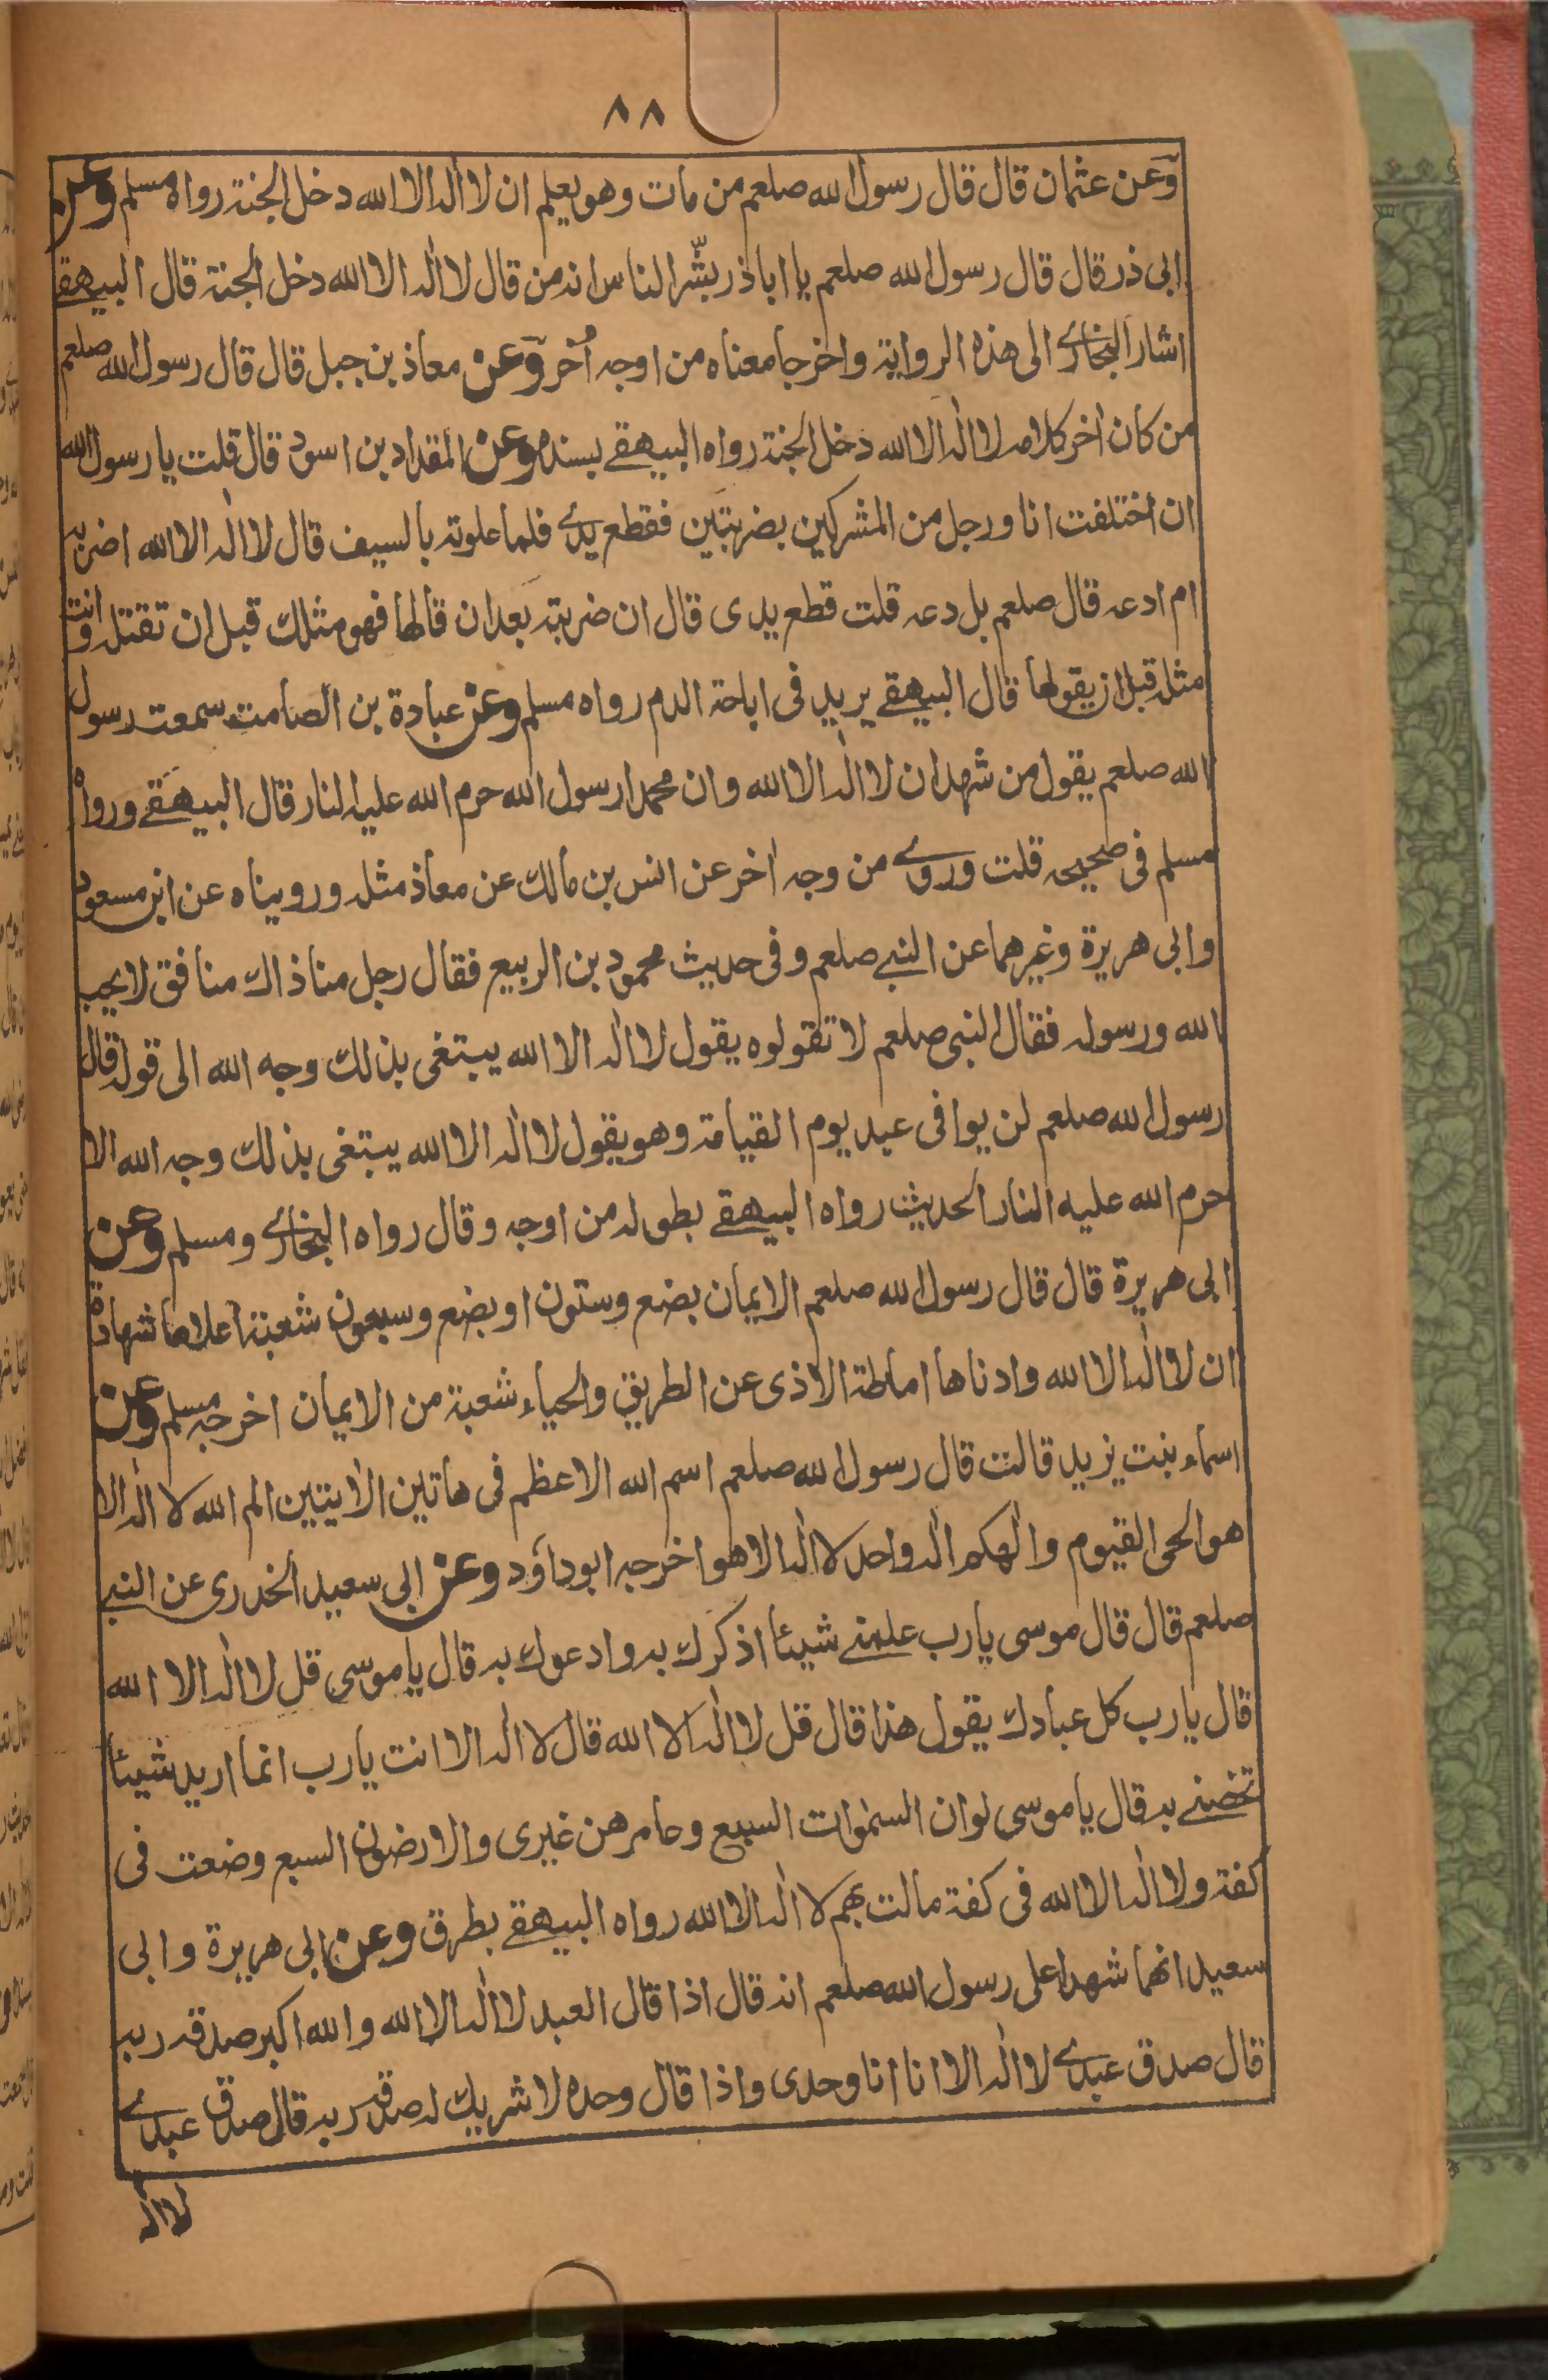 ٨٨
وعن عثمان قال قال رسول الله صلعم من مات وهو يعلم ان لا اله الا الله دخل الجنة رواه مسلم وعن
ابى ذر قال قال رسول الله صلعم يا اباذر بشّر الناس انه من قال لا اله الا الله دخل الجنة قال البيهقے
اشار البخارے الى هذه الرواية واخرجا معناه من اوجه اُخر وعن معاذ بن جبل قال قال رسول الله صلعم
من كان اخر كلامه لا اله الا الله دخل الجنة رواه البيهقے بسنده وعن المقداد بن اسود قال قلت يا رسول الله
ان اختلفت انا ورجل من المشركين بضربتين فقطع يدے فلما علوته بالسيف قال لا اله الا الله اضربه
ام ادعه قال صلعم بل دعه قلت قطع يدى قال ان ضربته بعد ان قالها فهو مثلك قبل ان تقتله وانت
مثله قبل ان يقولها قال البيهقے يريد فى اباحة الدم رواه مسلم وعن عبادة بن الصامت سمعت رسول
الله صلعم يقول من شهد ان لا اله الا الله وان محمدا رسول الله حرم الله عليه النار قال البيهقے ورواه
مسلم فى صحيحه قلت وروے من وجه اٰخر عن انس بن مالك عن معاذ مثله وروييناه عن ابن مسعود
وابى هريرة وغيرهما عن النبے صلعم وفى حديث محمود بن الربيع فقال رجل منا ذاك منافق لا يحب
الله ورسوله فقال النبى صلعم لا تقولوه يقول لا اله الا الله يبتغى بذلك وجه الله الى قوله قال
رسول الله صلعم لن يوافى عبد يوم القيامة وهو يقول لا اله الا الله يبتغى بذلك وجه الله الا
حرم الله عليه النار الحديث رواه البيهقے بطوله من اوجه وقال رواه البخارے ومسلم وعن
ابى هريرة قال قال رسول الله صلعم الايمان بضع وستون او بضع وسبعون شعبة اعلاها شهادة
ان لا اله الا الله وادناها اماطة الاذى عن الطريق والحياء شعبة من الايمان اخرجه مسلم وعن
اسماء بنت يزيد قالت قال رسول الله صلعم اسم الله الاعظم فى هاتين الاٰيتين الم الله لا اله الا
هو الحى القيوم والٰهكم اله واحد لا اله الا هو اخرجه ابو داود وعن ابى سعيد الخدرى عن النبے
صلعم قال قال موسى يا رب علمنے شيئا اذكرك به وادعوك به قال يا موسى قل لا اله الا الله
قال يا رب كل عبادك يقول هذا قال قل لا اله الا الله قال لا اله الا انت يا رب انما اريد شيئا
تخصنے به قال يا موسى لو ان السمٰوات السبع وعامرهن غيرى والارضون السبع وضعت فى
كفة ولا اله الا الله فى كفة مالت بهم لا اله الا الله رواه البيهقے بطرق وعن ابى هريرة وابى
سعيد انهما شهدا على رسول الله صلعم انه قال اذا قال العبد لا اله الا الله والله اكبر صدقه ربه
قال صدق عبدے لا اله الا انا انا وحدى واذا قال وحده لا شريك له صدقه ربه قال صدق عبدے
لا اله